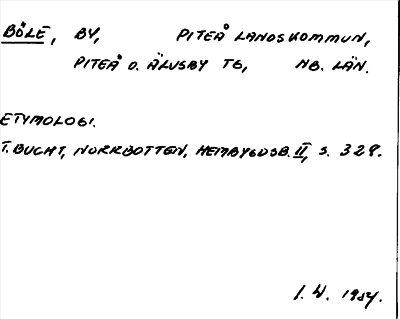 BÖLE, BY, PITEÅ LANDSKOMMUN,
PITEÅ O. ÄLVSBY TG, NB. LÄN.
ETYMOLOGI.
T. BUCHT, NORRBOTTEN, HEMBYGDSB. II, S. 328.
I. W. 1984.